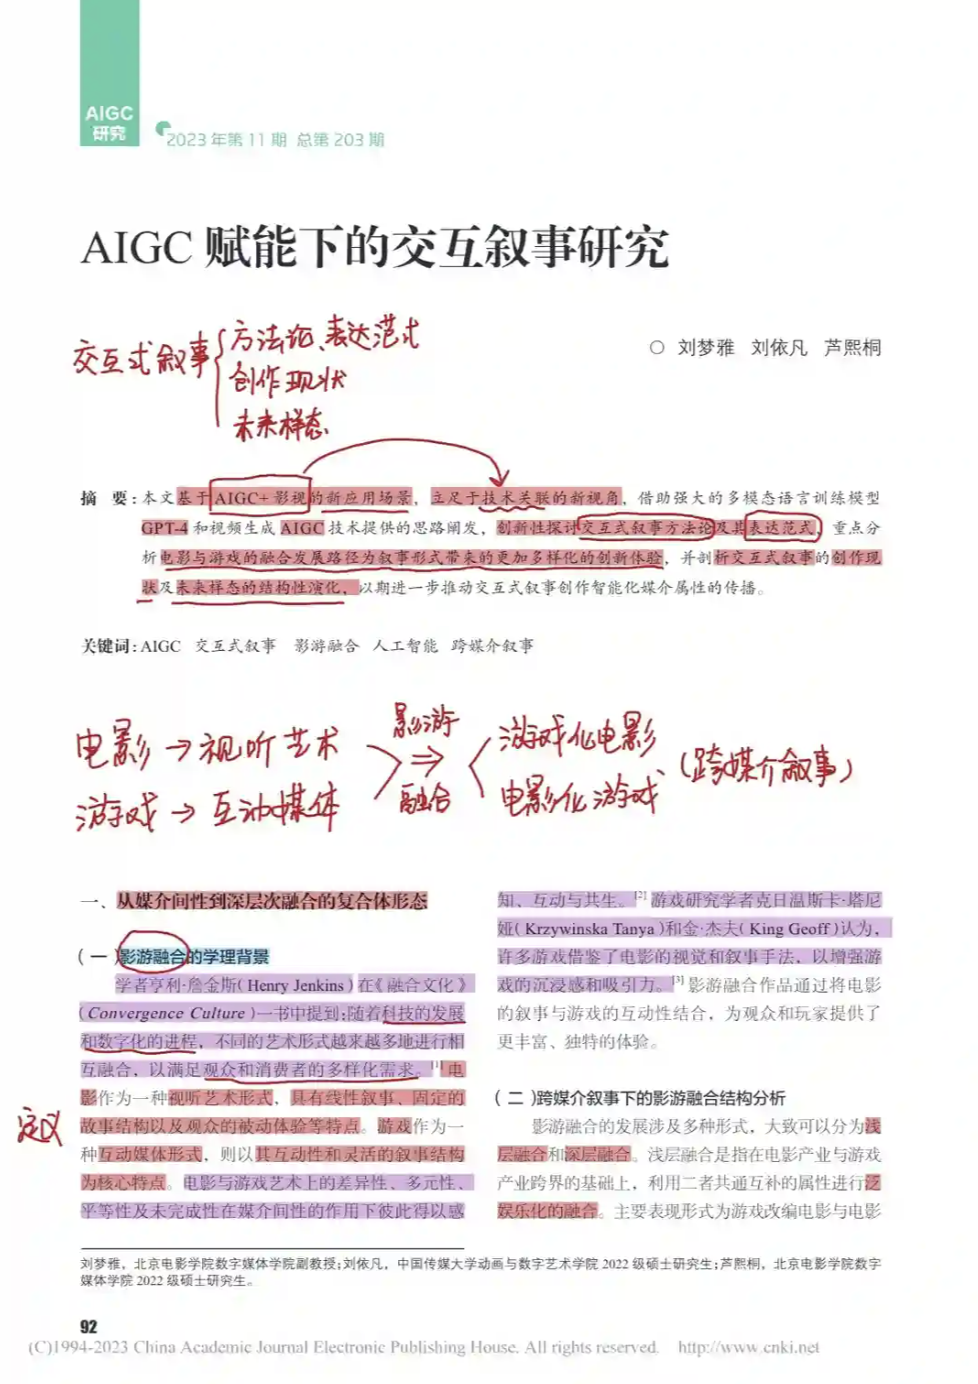 AIGC
研究
2023 年第 11 期 总第 203 期
AIGC 赋能下的交互叙事研究
○ 刘梦雅 刘依凡 芦熙桐
交互式叙事
方法论、表达范式
创作现状
未来样态
摘 要：本文基于 AIGC+ 影视的新应用场景，立足于技术关联的新视角，借助强大的多模态语言训练模型
GPT-4 和视频生成 AIGC 技术提供的思路阐发，创新性探讨交互式叙事方法论及其表达范式，重点分
析电影与游戏的融合发展路径为叙事形式带来的更加多样化的创新体验，并剖析交互式叙事的创作现
状及未来样态的结构性演化，以期进一步推动交互式叙事创作智能化媒介属性的传播。
关键词：AIGC 交互式叙事 影游融合 人工智能 跨媒介叙事
电影→视听艺术
游戏→互动媒体
影游
⇒
融合
游戏化电影
电影化游戏
(跨媒介叙事)
一、从媒介间性到深层次融合的复合体形态
（一）影游融合的学理背景
学者亨利·詹金斯（Henry Jenkins）在《融合文化》
（Convergence Culture）一书中提到：随着科技的发展
和数字化的进程，不同的艺术形式越来越多地进行相
互融合，以满足观众和消费者的多样化需求。[1]电
影作为一种视听艺术形式，具有线性叙事、固定的
故事结构以及观众的被动体验等特点。游戏作为一
种互动媒体形式，则以其互动性和灵活的叙事结构
为核心特点。电影与游戏艺术上的差异性、多元性、
平等性及未完成性在媒介间性的作用下彼此得以感
定义
知、互动与共生。[2]游戏研究学者克日温斯卡·塔尼
娅（Krzywinska Tanya）和金·杰夫（King Geoff）认为，
许多游戏借鉴了电影的视觉和叙事手法，以增强游
戏的沉浸感和吸引力。[3]影游融合作品通过将电影
的叙事与游戏的互动性结合，为观众和玩家提供了
更丰富、独特的体验。
（二）跨媒介叙事下的影游融合结构分析
影游融合的发展涉及多种形式，大致可以分为浅
层融合和深层融合。浅层融合是指在电影产业与游戏
产业跨界的基础上，利用二者共通互补的属性进行泛
娱乐化的融合。主要表现形式为游戏改编电影与电影
刘梦雅，北京电影学院数字媒体学院副教授；刘依凡，中国传媒大学动画与数字艺术学院 2022 级硕士研究生；芦熙桐，北京电影学院数字
媒体学院 2022 级硕士研究生。
92
(C)1994-2023 China Academic Journal Electronic Publishing House. All rights reserved. http://www.cnki.net